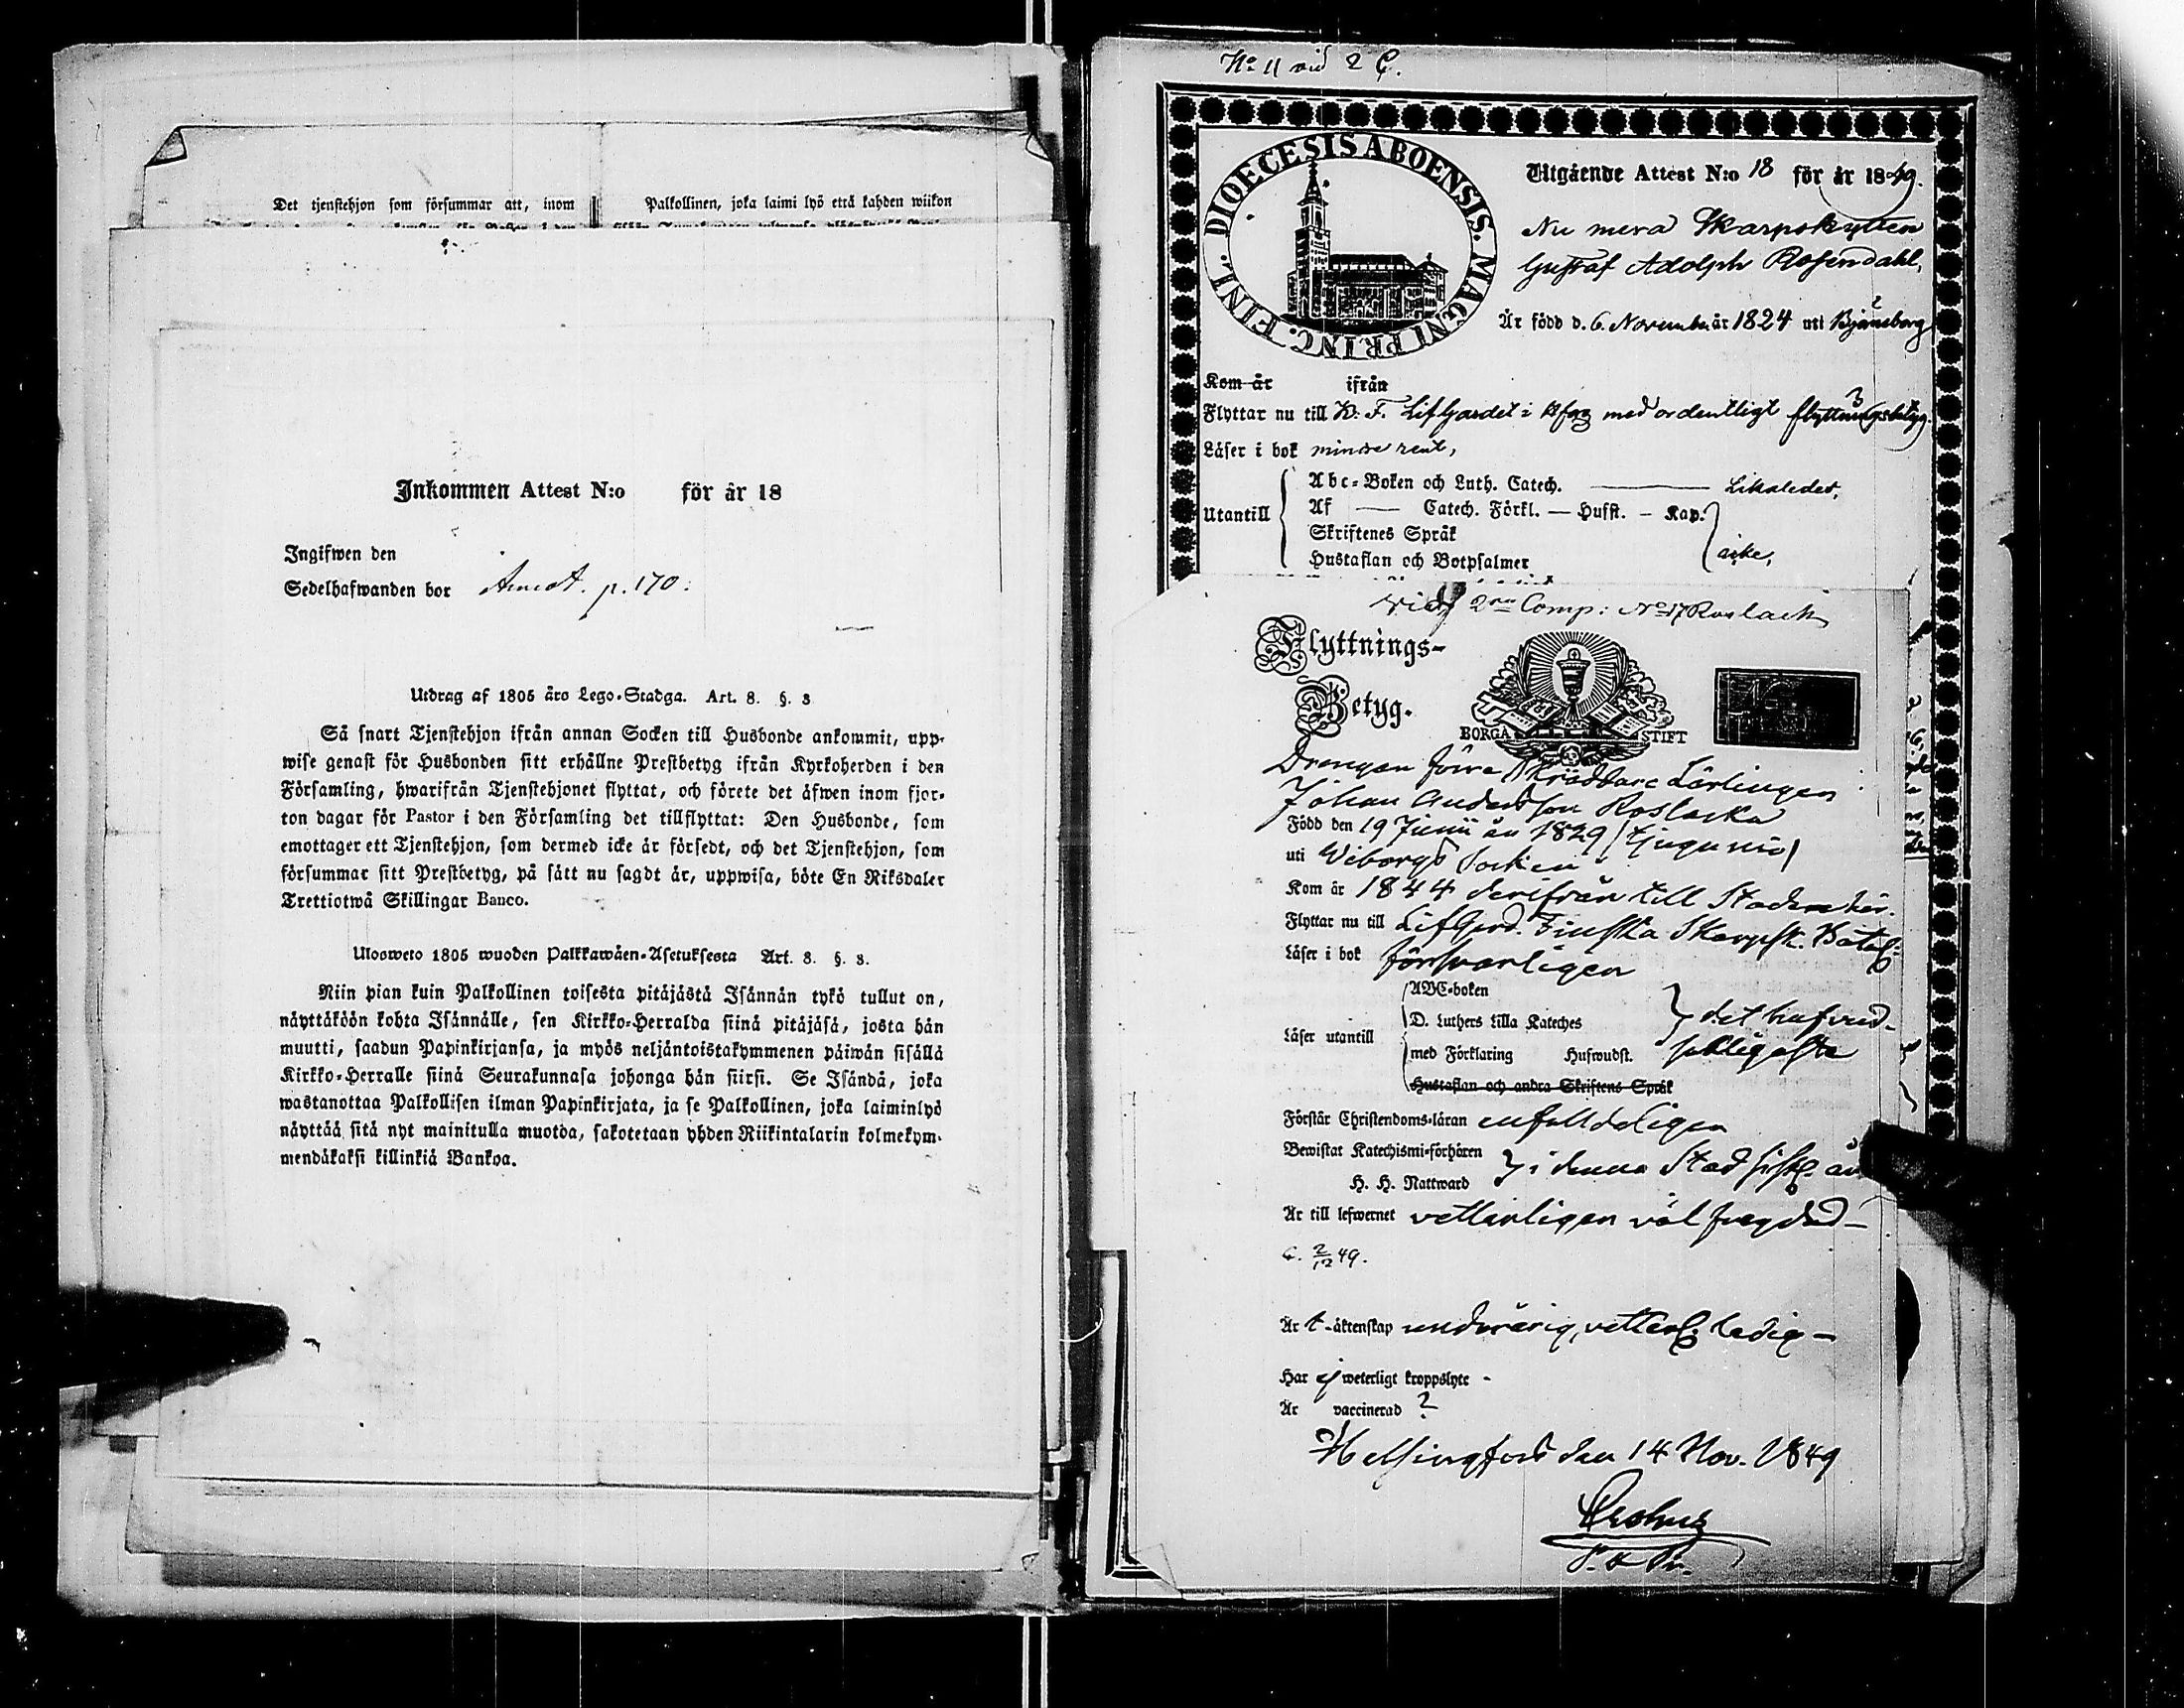 Det tjenstehjon som försummar att, inom
Palkollinen, joka laimi lyö että kahden wiikon
Inkommen Attest N:o för år 18
Ingifwen den
Sedelhafwanden bor p. 170.
Utdrag af 1805 års Lego-Stadga. Art. 8. §. 3
Så snart Tjenstehjon ifrån annan Socken till Husbonde ankommit, upp-
wise genast för Husbonden sitt erhållne Prestbetyg ifrån Kyrkoherden i den
Församling, hwarifrån Tjenstehjonet flyttat, och förete det äfwen inom fjor-
ton dagar för Pastor i den Församling det tillflyttat: Den Husbonde, som
emottager ett Tjenstehjon, som dermed icke är försedt, och det Tjenstehjon, som
försummar sitt Prestbetyg, på sätt nu sagdt är, uppwisa, böte En Riksdaler
Trettiotwå Skillingar Banco.
Ulosweto 1805 wuoden Palkkawäen-Asetuksesta Art. 8. §. 3.
Niin pian kuin Palkollinen toisesta pitäjästä Isännän tykö tullut on,
näyttäköön kohta Isännälle, sen Kirkko-Herralda siinä pitäjäsä, josta hän
muutti, saadun Papinkirjansa, ja myös neljäntoistakymmenen päiwän sisällä
Kirkko-Herralle siinä Seurakunnasa johonga hän siirsi. Se Isändä, joka
wastanottaa Palkollisen ilman Papinkirjata, ja se Palkollinen, joka laiminlyö
näyttää sitä nyt mainitulla muotoa, sakotetaan yhden Riikintalarin kolmekym-
mendäkaksi killinkiä Bankoa.
No 11 vid 2 C.
DIOECESIS ABOENSIS. MAGNI PRINC. FINL.
Utgående Attest N:o 18 för år 1849.
Nu mera Skarpskytten
Gustaf Adolph Rosendahl,
Är född d. 6. November år 1824 uti Björneborg
Kom år ifrån
Flyttar nu till K. F. Lif Gardet i Hfors med ordentligt flyttningsbetyg.
Läser i bok mindre rent,
Utantill
Abc-Boken och Luth. Catech. Likaledes,
Af Catech. Förkl. — Husst. - Kap.
Skriftenes Språk
Hustaflan och Botpsalmer icke,
vid 2dra Comp: No 17 Roslack
Flyttnings-
Betyg.
BORGÅ STIFT
Drengen förre Skräddare Lärlingen
Johan Andersson Roslacka
Född den 19 Junii år 1829 (tjugunio)
uti Wiborgs Socken
Kom år 1844 derifrån till Staden här.
Flyttar nu till LifGard. Finska Skarpsk. Batal.
Läser i bok försvarligen
Läser utantill
ABC-boken
D. Luthers Lilla Kateches det hufvud-
med Förklaring Hufwudst. sakligaste
Hustaflan och andra Skriftens Språk
Förstår Christendoms-läran enfalldeligen
Bewistat Katechismi-förhören
H. H. Nattward i denna Stad sistl. år
Är till lefwernet vetterligen väl frejdad
2/12 49.
Är t. äktenskap vetterl. ledig —
Har ej weterligt kroppslyte -
Är vaccinerad ?
Helsingfors den 14 Nov. 1849